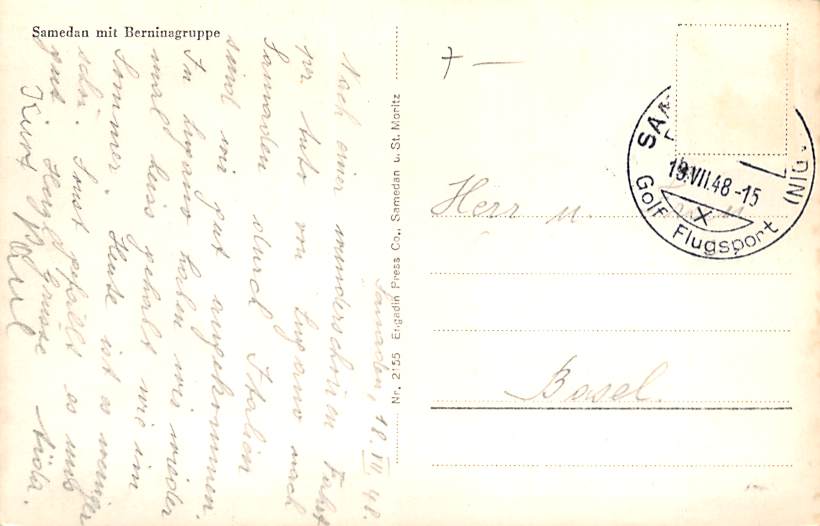 Samedan mit Berninagruppe
Samaden, 18. VII. 48.
Nach einer wunderschönen Fahrt
per Auto von Lugano nach
Samaden durch Italien
sind wir gut angekommen.
In Lugano haben wir wieder
mal heiss gehabt wie im
Sommer. Heute ist es weniger
schön. Sonst gefällt es uns
gut. Herzl. Grüsse
Kurt Paul
Nr. 2155 Engadin Press Co., Samedan u. St. Moritz
+ —
Herr u.
Basel.
SA
19.VII.48-15
X
Golf Flugsport